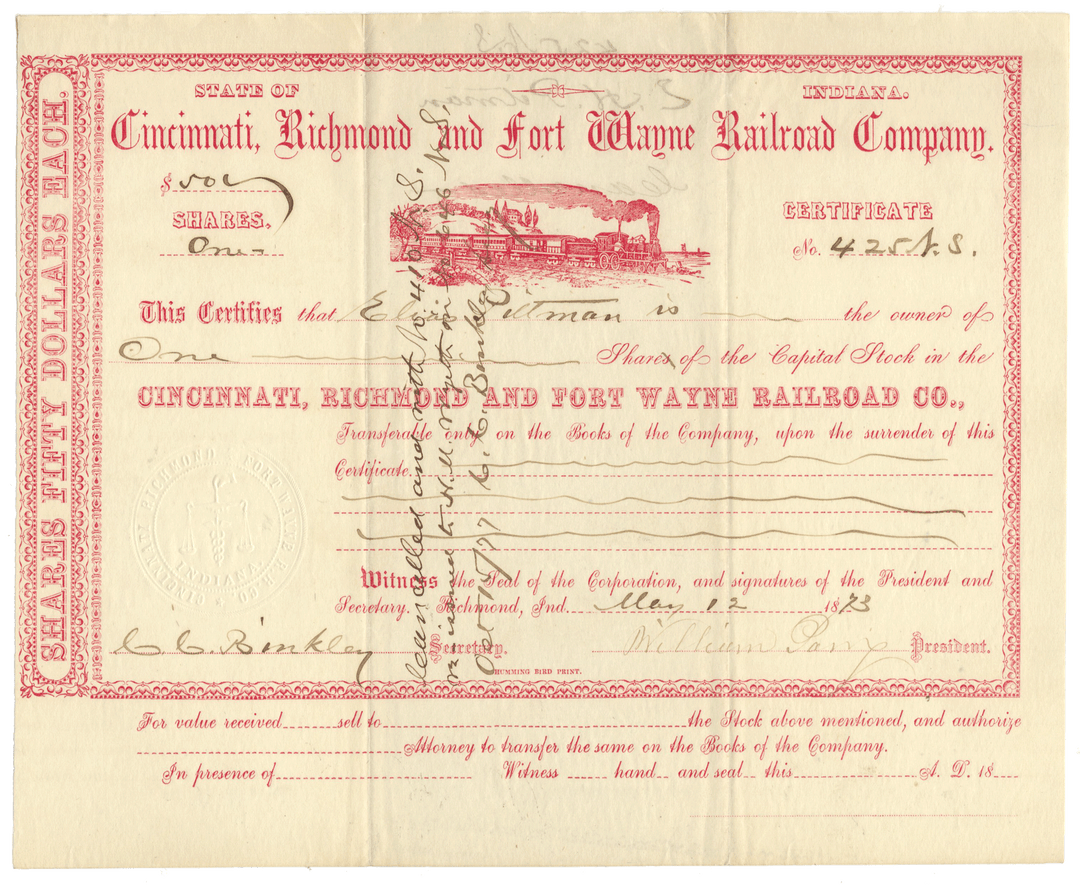 STATE OF INDIANA.
Cincinnati, Richmond and Fort Wayne Railroad Company.
$ 50
SHARES,
One
CERTIFICATE
No. 425 N.S.
This Certifies that Pittman is the owner of
One Shares of the Capital Stock in the
CINCINNATI, RICHMOND AND FORT WAYNE RAILROAD CO.,
Transferable only on the Books of the Company, upon the surrender of this
Certificate.
Witness the Seal of the Corporation, and signatures of the President and
Secretary. Richmond, Ind. May 12 1873
C C Binkley Secretary. William Parry President.
HUMMING BIRD PRINT.
SHARES FIFTY DOLLARS EACH.
CINCINNATI RICHMOND & FORT WAYNE R.W. CO
INDIANA
Cancelled and with No 410 N.S.
reissued to in No N.S.
Oct 15/77 C. C. Binkley
For value received sell to the Stock above mentioned, and authorize
Attorney to transfer the same on the Books of the Company.
In presence of Witness hand and seal this A. D. 18